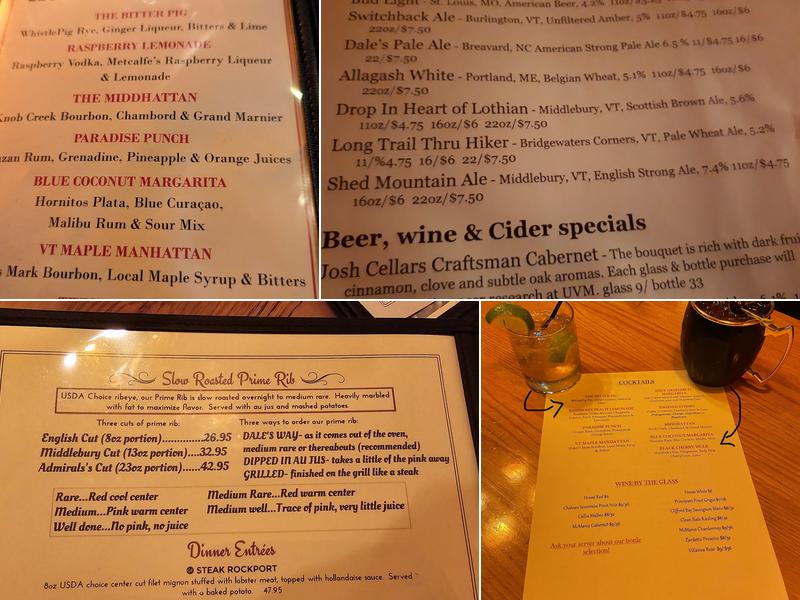 THE BITTER PIG
WhistlePig Rye, Ginger Liqueur, Bitters & Lime
RASPBERRY LEMONADE
Raspberry Vodka, Metcalfe's Raspberry Liqueur
& Lemonade
THE MIDDHATTAN
Knob Creek Bourbon, Chambord & Grand Marnier
PARADISE PUNCH
Rum, Grenadine, Pineapple & Orange Juices
BLUE COCONUT MARGARITA
Hornitos Plata, Blue Curaçao,
Malibu Rum & Sour Mix
VT MAPLE MANHATTAN
Mark Bourbon, Local Maple Syrup & Bitters
Bud Light - St. Louis, MO, American Beer, 4.2%
Switchback Ale - Burlington, VT, Unfiltered Amber, 5% 11oz/$4.75 16oz/$6
22oz/$7.50
Dale's Pale Ale - Breavard, NC American Strong Pale Ale 6.5 % 11/$4.75 16/$6
22/$7.50
Allagash White - Portland, ME, Belgian Wheat, 5.1% 11oz/$4.75 16oz/$6
22oz/$7.50
Drop In Heart of Lothian - Middlebury, VT, Scottish Brown Ale, 5.6%
11oz/$4.75 16oz/$6 22oz/$7.50
Long Trail Thru Hiker - Bridgewaters Corners, VT, Pale Wheat Ale, 5.2%
11/%4.75 16/$6 22/$7.50
Shed Mountain Ale - Middlebury, VT, English Strong Ale, 7.4% 11oz/$4.75
16oz/$6 22oz/$7.50
Beer, wine & Cider specials
Josh Cellars Craftsman Cabernet - The bouquet is rich with dark frui
cinnamon, clove and subtle oak aromas. Each glass & bottle purchase will
research at UVM. glass 9/ bottle 33
Slow Roasted Prime Rib
USDA Choice ribeye, our Prime Rib is slow roasted overnight to medium rare. Heavily marbled
with fat to maximize flavor. Served with au jus and mashed potatoes.
Three cuts of prime rib:
English Cut (8oz portion).............26.95
Middlebury Cut (13oz portion)....32.95
Admirals's Cut (23oz portion)......42.95
Three ways to order our prime rib:
DALE'S WAY- as it comes out of the oven,
medium rare or thereabouts (recommended)
DIPPED IN AU JUS- takes a little of the pink away
GRILLED- finished on the grill like a steak
Rare...Red cool center
Medium Rare...Red warm center
Medium...Pink warm center
Medium well...Trace of pink, very little juice
Well done...No pink, no juice
Dinner Entrées
STEAK ROCKPORT
8oz USDA choice center cut filet mignon stuffed with lobster meat, topped with hollandaise sauce. Served
with a baked potato. 47.95
COCKTAILS
THE BITTER PIG
RASPBERRY PEACH LEMONADE
PARADISE PUNCH
VT MAPLE MANHATTAN
MARGARITA
MIDDHATTAN
BLUE COCONUT MARGARITA
BLACK CHERRY MULE
WINE BY THE GLASS
House Red $6
House White $6
Ask your server about our bottle
selection!